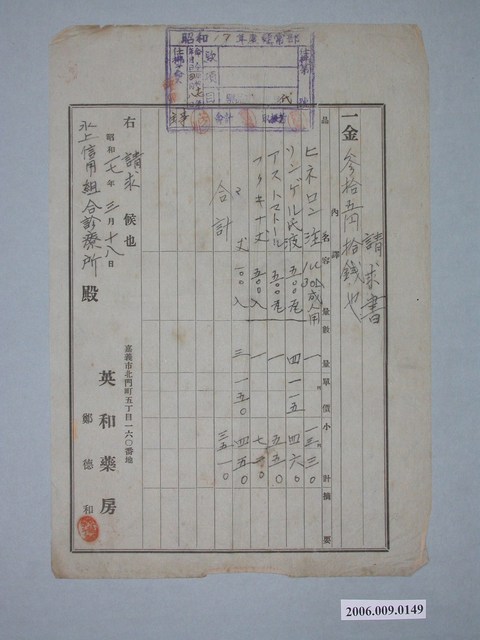 昭和17年度經常部
款
項
目
合計
請求書
一金參拾五円拾錢也
內譯
品名 容量 數量 單價 小計 摘要
ヒネロン注 成人用 一 一三、三〇
リンゲル氏液 五〇〇瓦 四 一一五 四六〇
アストマトール 五〇〇瓦 一 五五〇
五〇〇入 一
〃 一〇〇入 三 一五〇 四五〇
合計 三五一〇
右請求候也
昭和一七年三月十八日
水上信用組合診療所 殿
嘉義市北門町五丁目一六〇番地
英和藥房
鄭德和
2006.009.0149